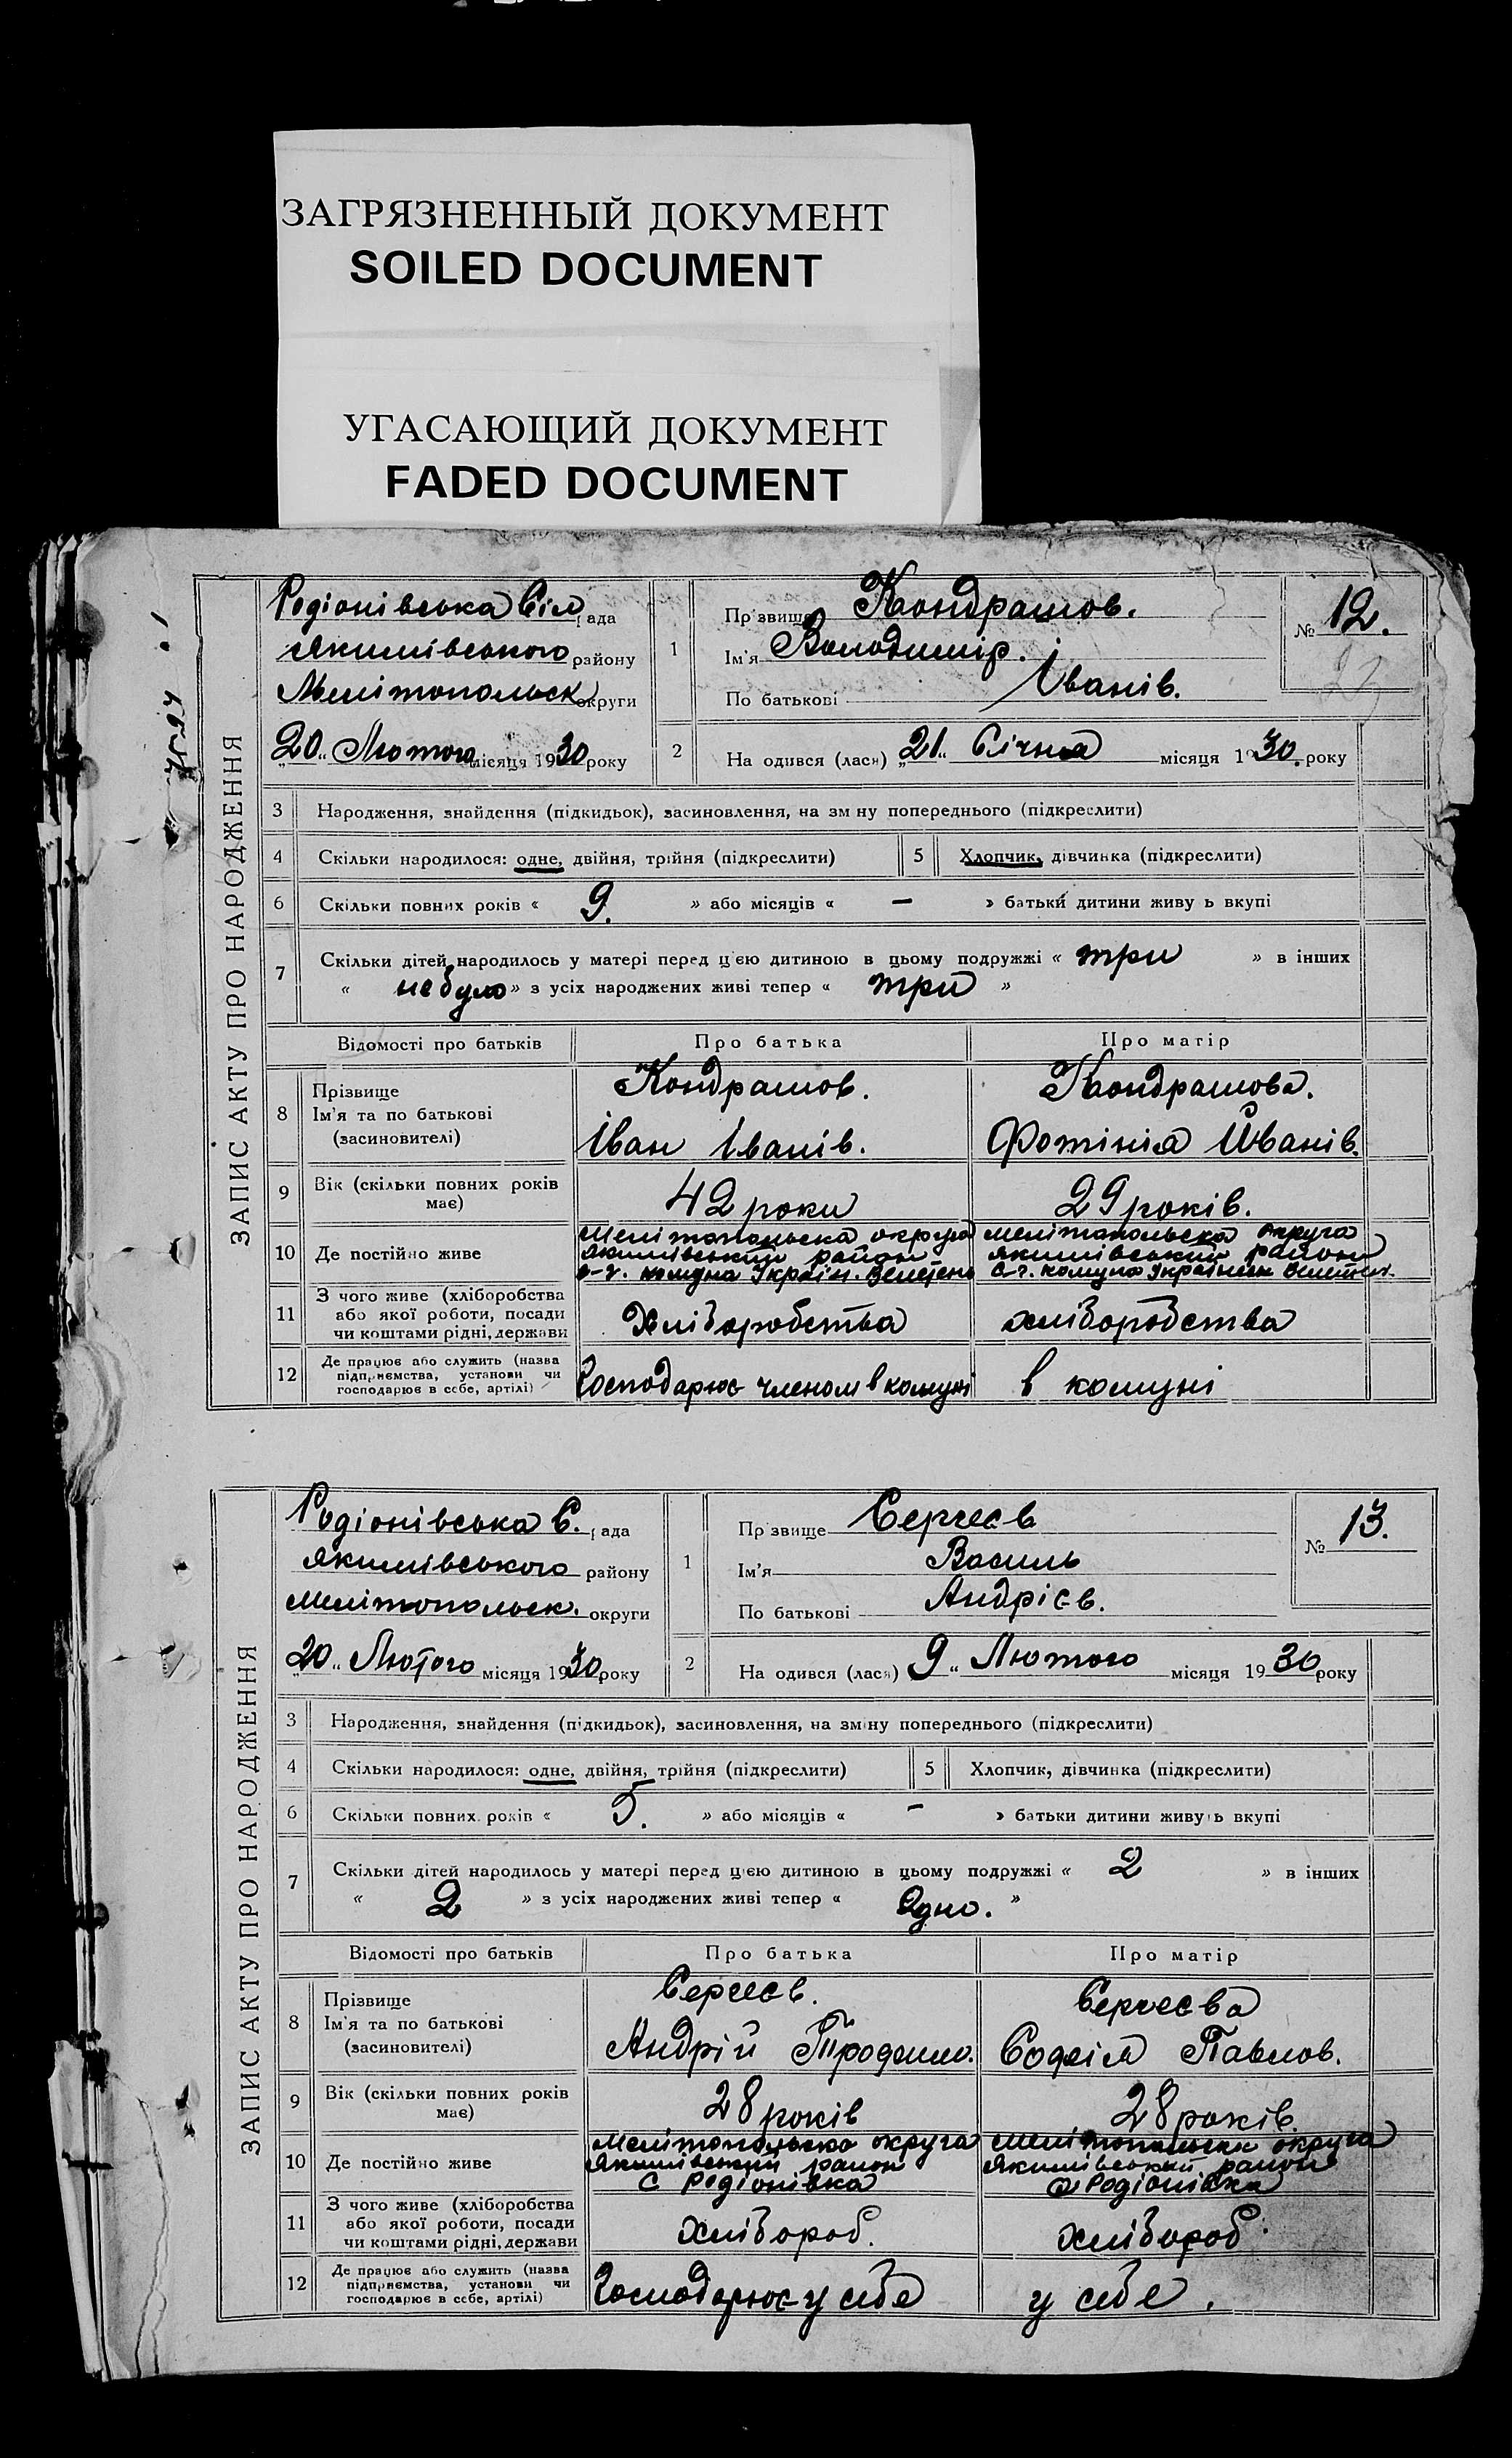 ЗАГРЯЗНЕННЫЙ ДОКУМЕНТ
SOILED DOCUMENT
УГАСАЮЩИЙ ДОКУМЕНТ
FADED DOCUMENT
ЗАПИС АКТУ ПРО НАРОДЖЕННЯ
Родіонівська Сіл рада
Якимівського району
Мелітопольськ округи
„20„ Лютого місяця 1930 року
1 Прізвище Кондрашов.
Ім'я Володимір.
По батькові Іванів.
№ 12.
2 На одився (лася) „21„ Січня місяця 1930. року
3 Народження, знайдення (підкидьок), засиновлення, на зм ну попереднього (підкреслити)
4 Скільки народилося: одне, двійня, трійня (підкреслити) 5 Хлопчик, дівчинка (підкреслити)
6 Скільки повних років « 9. » або місяців « – » батьки дитини живу ь вкупі
7 Скільки дітей народилось у матері перед цією дитиною в цьому подружжі « три » в інших
« не було » з усіх народжених живі тепер « три »
Відомості про батьків Про батька Про матір
8 Прізвище Ім'я та по батькові (засиновителі)
Кондрашов. Кондрашова.
Іван Іванів. Фотінія Йванів.
9 Вік (скільки повних років має) 42 роки 29 років.
10 Де постійно живе
Мелітопольска округа Мелітопольска округа
Якимівський район Якимівський район
с-г. комуна Україн. Велетень с-г. комуна Українськ Велетен.
11 З чого живе (хліборобства або якої роботи, посади чи коштами рідні, держави Хліборобства хліборобства
12 Де працює або служить (назва підприємства, установи чи господарює в себе, артілі) Господарює членом в комуні в комуні
ЗАПИС АКТУ ПРО НАРОДЖЕННЯ
Родіонівська С. рада
Якимівського району
Мелітопольск. округи
„20„ Лютого місяця 1930 року
1 Прізвище Сергеєв
Ім'я Василь
По батькові Андрієв.
№ 13.
2 На одився (лася) 9„ Лютого місяця 1930 року
3 Народження, знайдення (підкидьок), засиновлення, на зміну попереднього (підкреслити)
4 Скільки народилося: одне, двійня, трійня (підкреслити) 5 Хлопчик, дівчинка (підкреслити)
6 Скільки повних років « 5. » або місяців « – » батьки дитини живуть вкупі
7 Скільки дітей народилось у матері перед цією дитиною в цьому подружжі « 2 » в інших
« 2 » з усіх народжених живі тепер « Одно. »
Відомості про батьків Про батька Про матір
8 Прізвище Ім'я та по батькові (засиновителі)
Сергеєв. Сергеєва
Андрій Трофимо. Софія Павлов.
9 Вік (скільки повних років має) 28 років 28 років.
10 Де постійно живе
Мелітопольска округа Мелітопольска округа
Якимівський район Якимівський район
с Родіонівка с Родіонівка
11 З чого живе (хліборобства або якої роботи, посади чи коштами рідні, держави хлібороб. хлібороб.
12 Де працює або служить (назва підприємства, установи чи господарює в себе, артілі) Господарює у себе у себе.